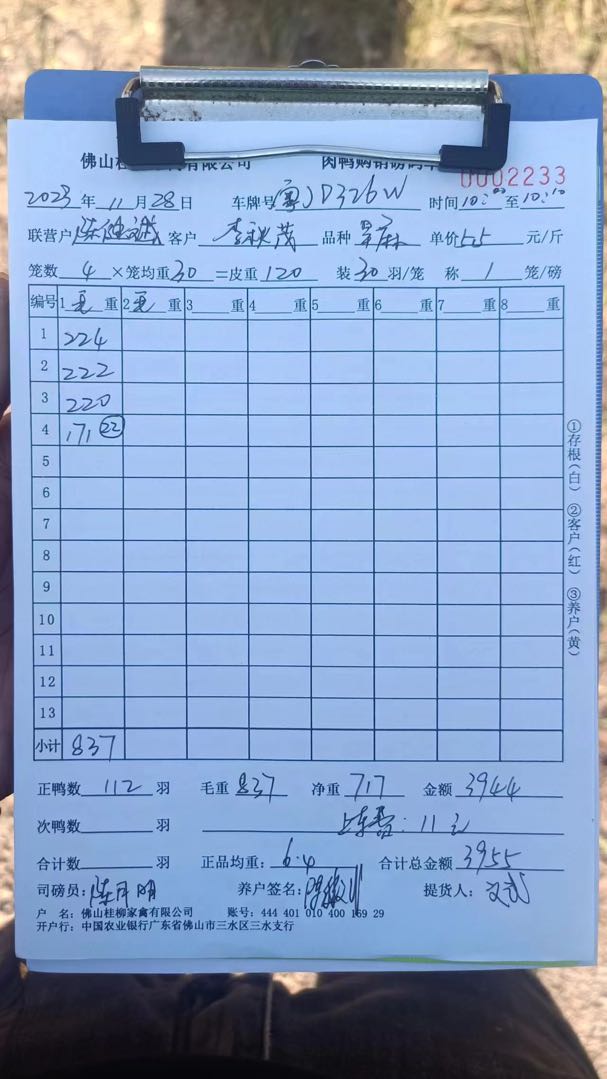 佛山桂 有限公司 肉鸭购销磅码单
0002233
2023年11月28日 车牌号 粤JD326W 时间10:00至10:10
联营户 客户 李秋茂 品种 单价5.5元/斤
笼数4×笼均重30=皮重120 装30羽/笼 称1笼/磅
编号 1毛重 2毛重 3 重 4 重 5 重 6 重 7 重 8 重
1 224
2 222
3 220
4 171 22
5
6
7
8
9
10
11
12
13
小计 837
①存根(白) ②客户(红) ③养户(黄)
正鸭数112羽 毛重837 净重717 金额3944
次鸭数 羽 上车费:11元
合计数 羽 正品均重:6.4 合计总金额3955
司磅员:陈月明 养户签名: 提货人:
户 名:佛山桂柳家禽有限公司 账号:444 401 010 400 169 29
开户行:中国农业银行广东省佛山市三水区三水支行